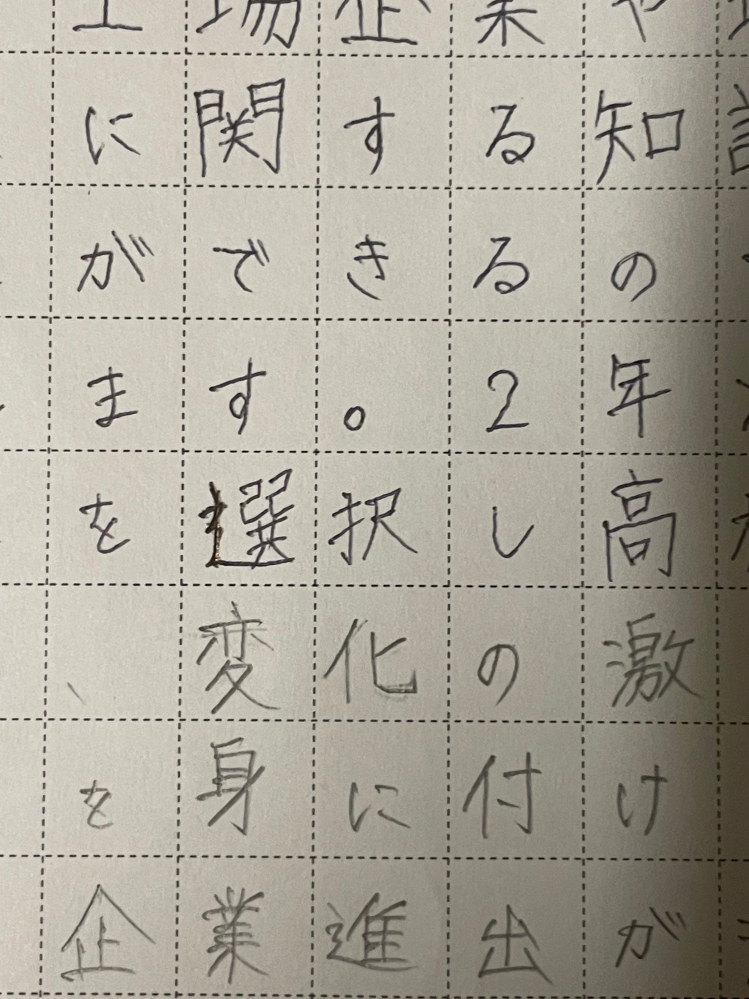 上場企業や
に関する知
ができるの
ます。2年
を選択し高
、変化の激
を身に付け
企業進出が